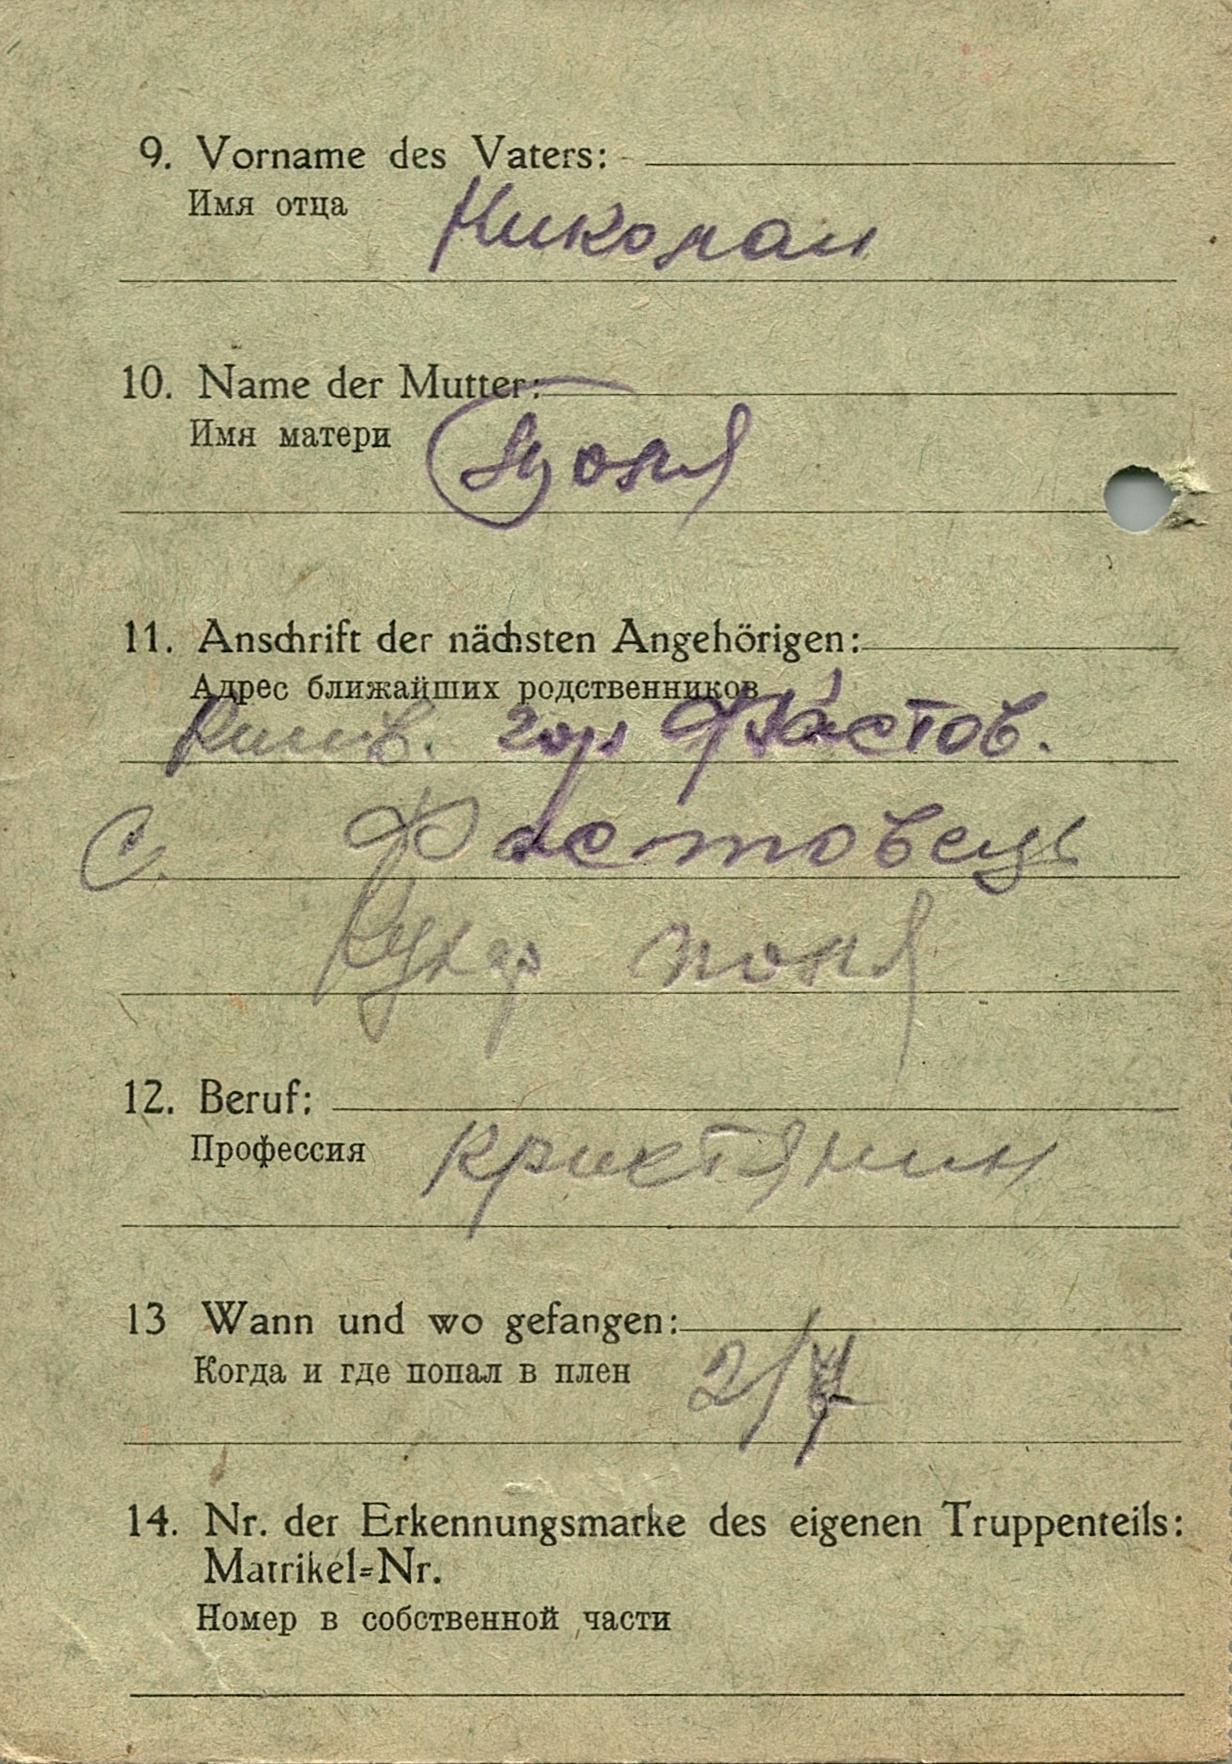 9. Vorname des Vaters:
Имя отца
Николаи
10. Name der Mutter:
Имя матери
11. Anschrift der nächsten Angehörigen:
Адрес ближайших родственников
гор Фастов.
с. Фастовець
поля
12. Beruf:
Профессия
кристянин
13 Wann und wo gefangen:
Когда и где попал в плен
2/7
14. Nr. der Erkennungsmarke des eigenen Truppenteils:
Matrikel=Nr.
Номер в собственной части